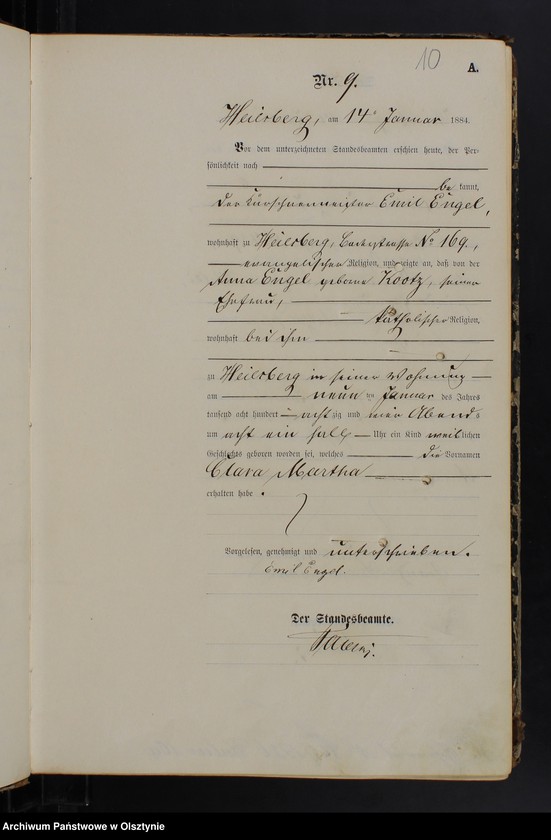 10
A.
Nr. 9.
Heilsberg, am 14 Januar 1884.
Vor dem unterzeichneten Standesbeamten erschien heute, der Per-
sönlichkeit nach
be kannt,
der Kürschnermeister Emil Engel,
wohnhaft zu Heilsberg, No 169,
evangelischer Religion, und zeigte an, daß von der
Anna Engel geborne Kootz, seiner
Ehefrau,
katholischer Religion,
wohnhaft bei ihm
zu Heilsberg in seiner Wohnung
am neun ten Januar des Jahres
tausend acht hundert achtzig und vier Abends
um acht ein halb Uhr ein Kind weiblichen
Geschlechts geboren worden sei, welches die Vornamen
Clara Martha
erhalten habe.
Vorgelesen, genehmigt und unterschrieben.
Emil Engel.
Der Standesbeamte.
Archiwum Państwowe w Olsztynie